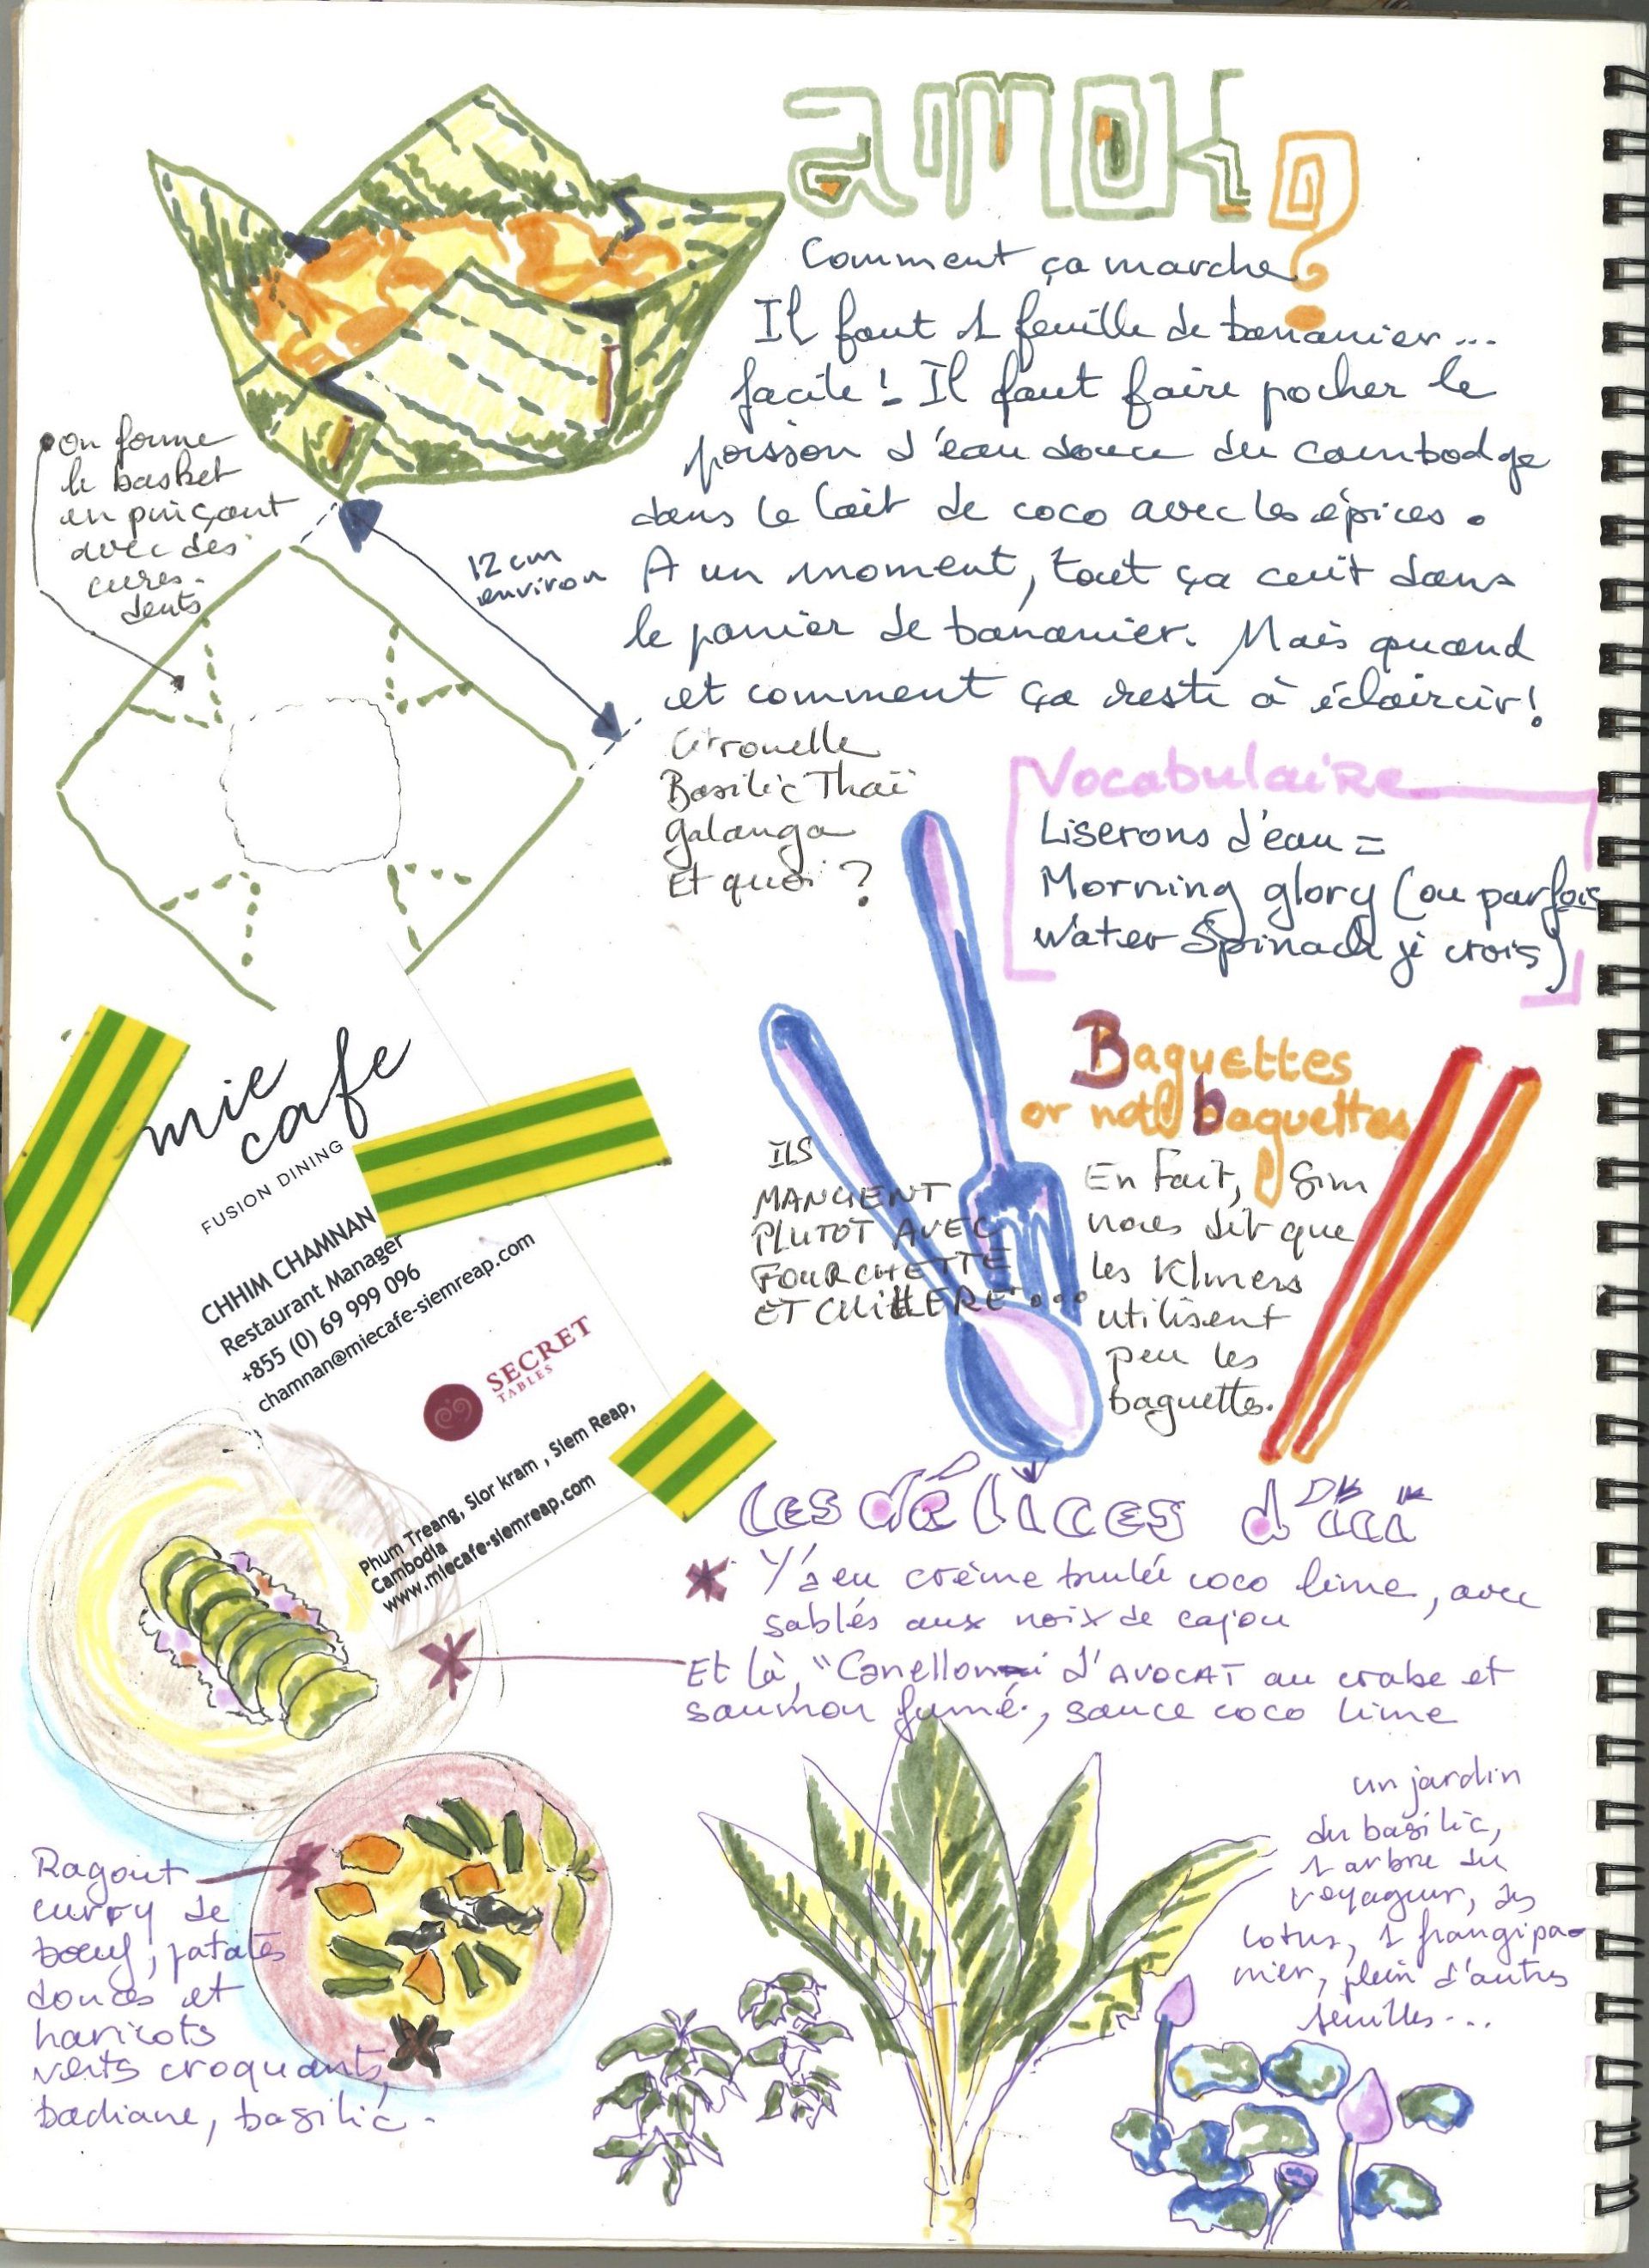 amok?
Comment ça marche
Il faut 1 feuille de bananier...
facile! Il faut faire pocher le
poisson d'eau douce du Cambodge
dans le lait de coco avec les épices.
A un moment, tout ça cuit dans
le panier de bananier. Mais quand
et comment ça reste à éclaircir!
on forme
le basket
en pinçant
avec des
cures-
dents
12 cm
environ
Citronelle
Basilic Thaï
Galanga
Et quoi ?
Vocabulaire
Liserons d'eau =
Morning glory (ou parfois
Water Spinach je crois)
mie
cafe
FUSION DINING
CHHIM CHAMNAN
Restaurant Manager
+855 (0) 69 999 096
chamnan@miecafe-siemreap.com
SECRET
TABLES
Phum Treang, Slor kram , Siem Reap,
Cambodia
www.miecafe-siemreap.com
Baguettes
or not baguettes
ILS
MANGENT
PLUTOT AVEC
FOURCHETTE
ET CUILLERE...
En fait, Sim
nous dit que
les Khmers
utilisent
peu les
baguettes.
Les délices d'ici
Y'a eu crème brulée coco lime, avec
sablés aux noix de cajou
Et là, "Canelloni d'AVOCAT au crabe et
saumon fumé, sauce coco lime
Ragout
curry de
boeuf, patates
douces et
haricots
verts croquants,
badiane, basilic.
un jardin
du basilic,
1 arbre du
voyageur, des
lotus, 1 frangipa-
nier, plein d'autres
feuilles...